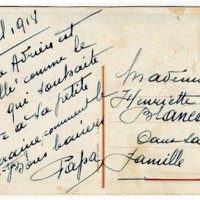 l 1918
Adrien est
lle comme le
que souhaite
e à sa petite
rraine, comment le
Bons baisers
Papa
Mademoi
Henriette
Blanc
Dans sa
Famille